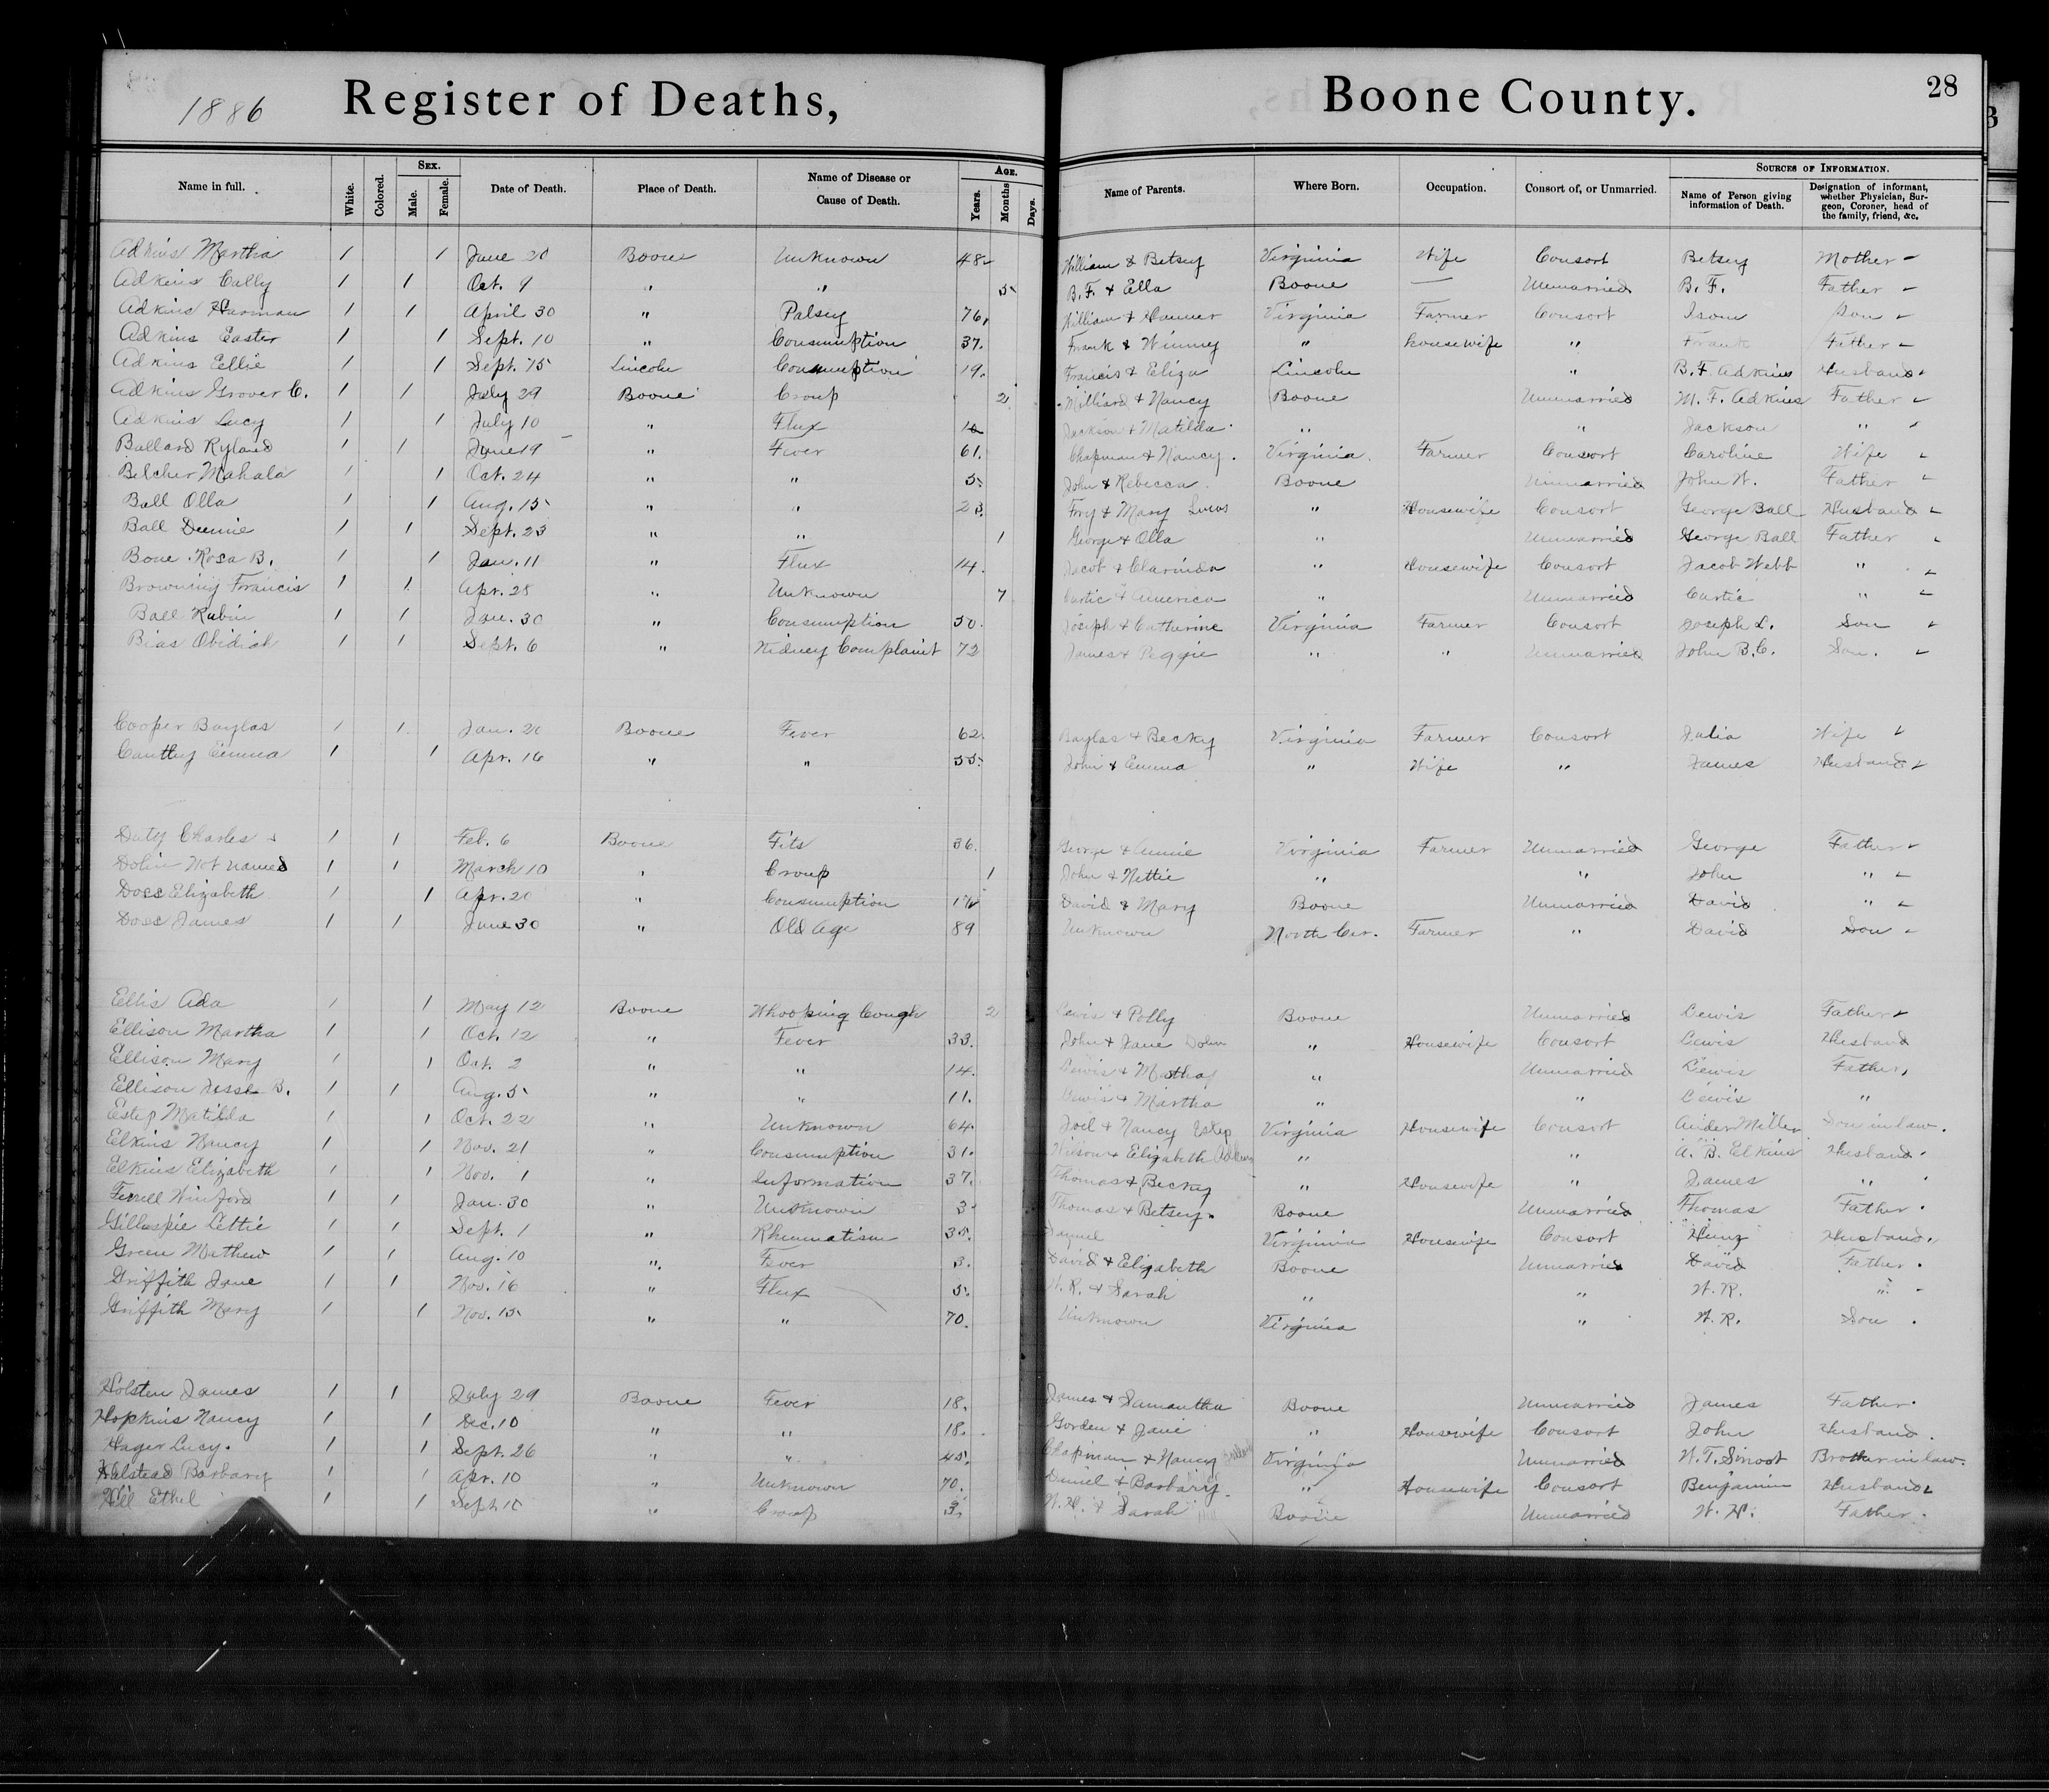 1886 Register of Deaths, Boone County. 28
Name in full. White. Colored. Sex. Male. Female. Date of Death. Place of Death. Name of Disease or Cause of Death. Age. Years. Months Days. Name of Parents. Where Born. Occupation. Consort of, or Unmarried. Sources of Information. Name of Person giving information of Death. Designation of informant, whether Physician, Surgeon, Coroner, head of the family, friend, &c.
Adkins Martha 1 1 June 20 Boone Unknown 48 William & Betsey Virginia Wife Consort Betsey Mother
Adkins Cally 1 1 Oct. 9 " " 5 B. F. & Ella Boone — Unmarried B. F. Father
Adkins Harman 1 1 April 30 " Palsey 76 William & Hanner Virginia Farmer Consort Isom Son
Adkins Easter 1 1 Sept. 10 " Consumption 37. Frank & Winney " housewife " Frank Father
Adkins Ellie 1 1 Sept. 15 Lincoln Consumption 19. Francis & Eliza Lincoln " B. F. Adkins Husband
Adkins Grover C. 1 1 July 29 Boone Croup 2 Milliard & Nancy Boone Unmarried M. F. Adkins Father
Adkins Lucy 1 1 July 10 " Flux Jackson & Matilda " " Jackson "
Ballard Ryland 1 1 June 19 " Fever 61. Chapman & Nancy. Virginia. Farmer Consort Caroline Wife
Belcher Mahala 1 1 Oct. 24 " " 5 John & Rebecca Boone Unmarried John W. Father
Ball Olla 1 1 Aug. 15 " " 23. & Mary Lucas " Housewife Consort George Ball Husband
Ball 1 1 Sept. 23 " " 1 George & Olla " Unmarried George Ball Father
Bone Rosa B. 1 1 Jan. 11 " Flux 14. Jacob & Clarinda " Housewife Consort Jacob Webb "
Browning Francis 1 1 Apr. 28 " Unknown 7 Curtic & America " Unmarried Curtic "
Ball Rubin 1 1 Jan. 30 " Consumption 50. Joseph & Catherine Virginia Farmer Consort Joseph L. Son
Bias Obidiah 1 1 Sept. 6 " Kidney Complaint 72 James & Peggie " " Unmarried John B. C. Son.
Cooper Baylas 1 1 Jan. 20 Boone Fever 62. Baylas & Becky Virginia Farmer Consort Julia Wife
Canthey Emma 1 1 Apr. 16 " " 55. John & Emma " Wife " James Husband
Duty Charles 1 1 Feb. 6 Boone Fits 36. George & Annie Virginia Farmer Unmarried George Father
Dolin Not named 1 1 March 10 " Croup 1 John & Nettie " " John "
Doss Elizabeth 1 1 Apr. 20 " Consumption David & Mary Boone Unmarried David "
Doss James 1 1 June 30 " Old Age 89 Unknown North Car. Farmer " David Son
Ellis Ada 1 1 May 12 Boone Whooping Cough 2 Lewis & Polly Boone Unmarried Lewis Father
Ellison Martha 1 1 Oct. 12 " Fever 33. John & Jane Dolin " Housewife Consort Lewis Husband
Ellison Mary 1 1 Oct. 2 " " 14. Lewis & Martha " Unmarried Lewis Father,
Ellison Jesse B. 1 1 Aug. 5 " " 11. Lewis & Martha " " Lewis "
Estep Matilda 1 1 Oct. 22 " Unknown 64. Joel & Nancy Estep Virginia Housewife Consort Ander Miller Son in law.
Elkins Nancy 1 1 Nov. 21 " Consumption 31. Wilson & Elizabeth Adkins " " A. B. Elkins Husband
Elkins Elizabeth 1 1 Nov. 1 " Information 37. Thomas & Becky " Housewife " James "
Ferrell Winford 1 1 Jan. 30 " Unknown 3 Thomas & Betsey. Boone Unmarried Thomas Father.
Gillaspie Lettie 1 1 Sept. 1 " Rheumatism 35. Virginia Housewife Consort Husband.
Green Mathew 1 1 Aug. 10 " Fever 3. David & Elizabeth Boone Unmarried David Father.
Griffith Jane 1 1 Nov. 16 " Flux 5. W. R. & Sarah " " W. R. "
Griffith Mary 1 1 Nov. 15 " " 70. Unknown Virginia " W. R. Son.
Holsten James 1 1 July 29 Boone Fever 18. James & Samantha Boone Unmarried James Father.
Hopkins Nancy 1 1 Dec. 10 " " 18. Gorden & Jane " Housewife Consort John Husband.
Hager Lucy. 1 1 Sept. 26 " " 45. Chapman & Nancy Ballard Virginia Unmarried W. T. Smoot Brother in law.
Halstead Barbary 1 1 Apr. 10 " Unknown 70. Daniel & Barbary. " Housewife Consort Benjamin Husband
Hill Ethel 1 1 Sept 10 " Croup 3. W. H. & Sarah Boone Unmarried W. H. Father.